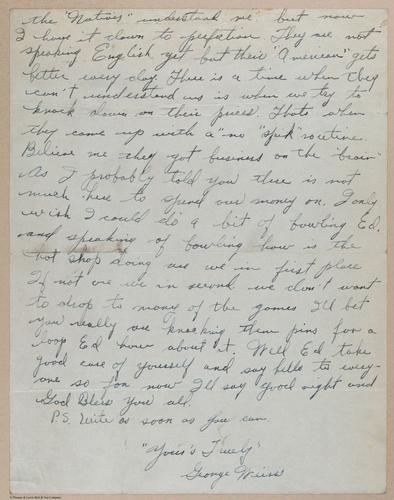 the "Natives" understand me but now
I have it down to perfection. They are not
speaking English yet but their "American" gets
better every day. There is a time when they
can't understand us is when we try to
knock down on their prices. Thats when
they come up with a "no "spik" routine.
Believe me they got business on the "brain"
As I probably told you there is not
much here to spend our money on. I only
wish I could do a bit of bowling Ed.
and speaking of bowling how is the
Pot Shop doing are we in first place
If not are we in second we don't want
to drop to many of the games I'll bet
you really are knocking them pins for a
loop Ed how about it. Well Ed take
good care of yourself and say hello to every-
one so for now I'll say good night and
God Bless You all.
P.S. Write as soon as you can.
"Yours Truely"
George Weiss